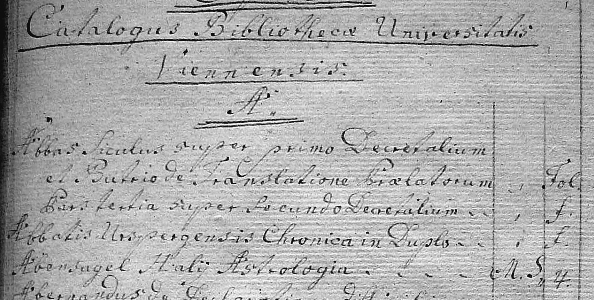 Catalogus Bibliothecæ Universitatis
Viennensis.
A.
Abbas Siculus super primo Decretalium
et Butrio de Translatione Prælatorum , Fol.
Pars tertia super secundo Decretalium - - , f.
Abbatis Urspergensis Chronica in Duplo - - , f.
Abensagel Halij Astrologia - - - M.S. 4.